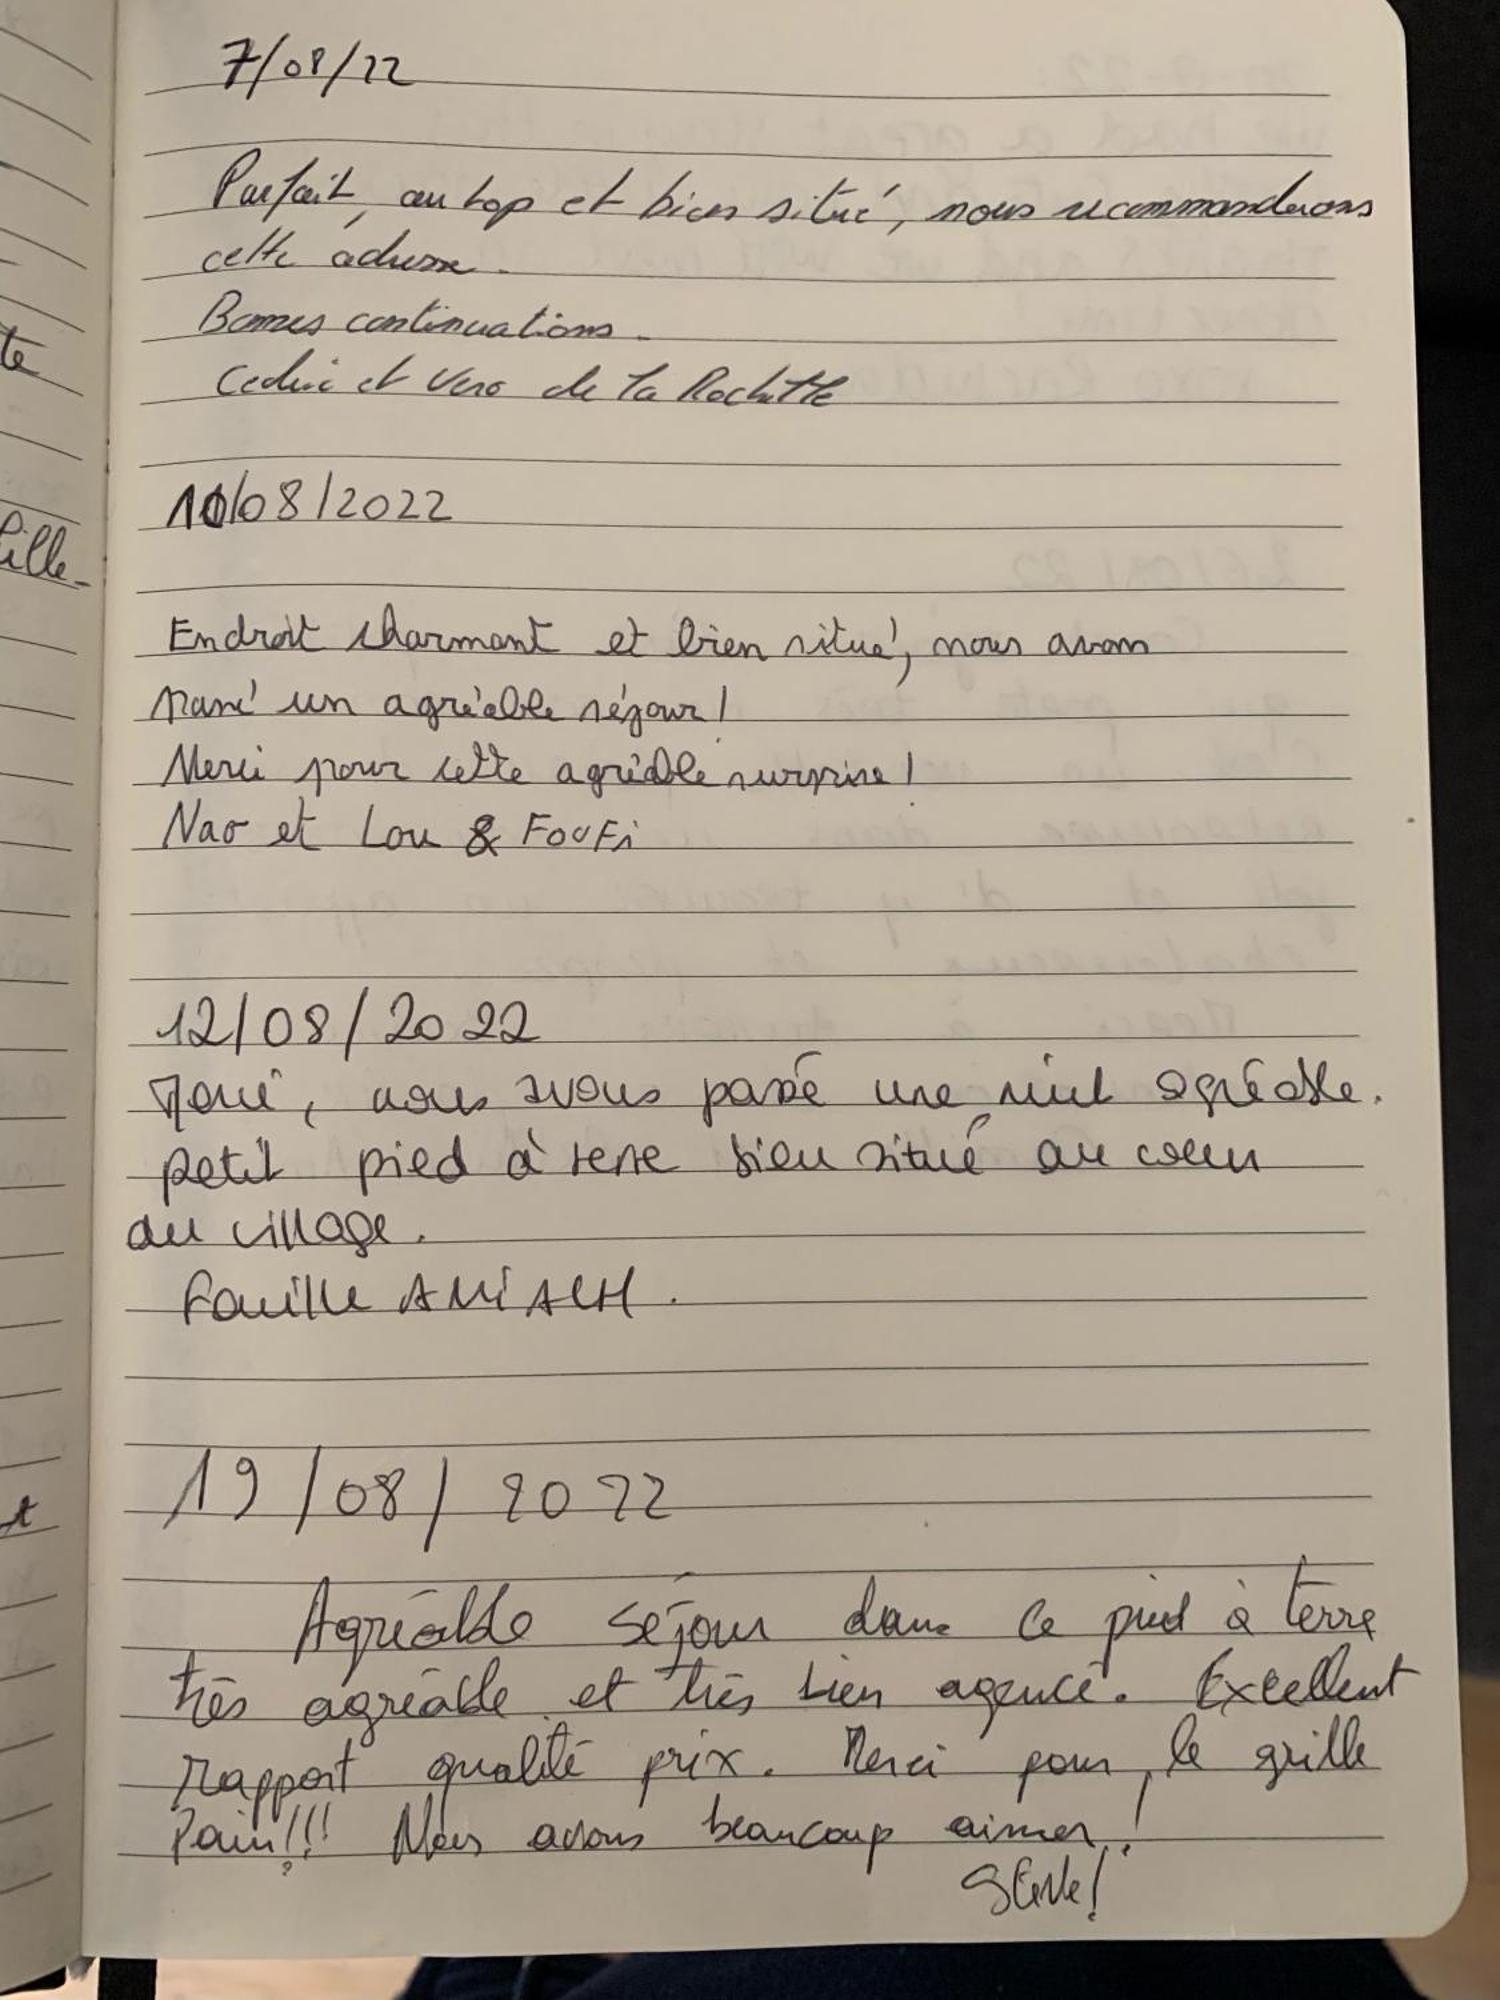 7/08/22
Parfait, au top et bien situé, nous recommanderons
cette adresse.
Bonnes continuations.
Cedric et Vero de la Rochette
10/08/2022
Endroit charmant et bien situé, nous avons
passé un agréable séjour!
Merci pour cette agréable surprise!
Nao et Lou & FouFi
12/08/2022
nous avons passé une nuit agréable.
petit pied à terre bien situé au coeur
du village.
Famille
19/08/2022
Agréable séjour dans ce pied à terre
très agréable et très bien agencé. Excellent
rapport qualité prix. Merci pour le grille
Pain!!! Nous avons beaucoup aimer!
te
fille
t